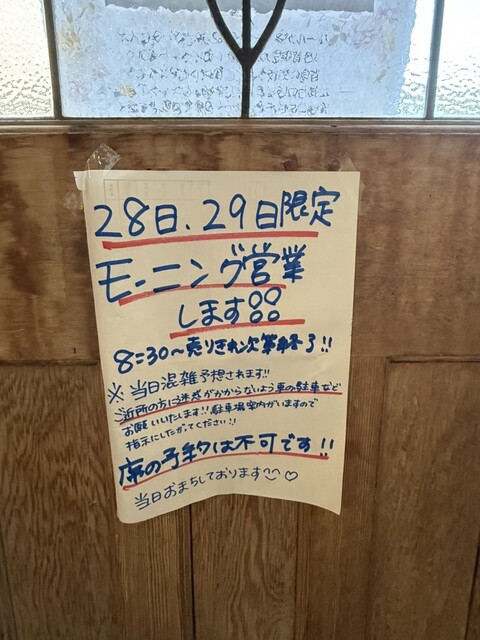 28日、29日限定
モーニング営業
します!!
8:30〜売りきれ次第終了!!
※当日混雑予想されます!!
近所の方に迷惑がかからないよう車の駐車など
お願いいたします!!駐車場案内がいますので
指示にしたがってください!!
席の予約は不可です!!
当日おまちしております♡